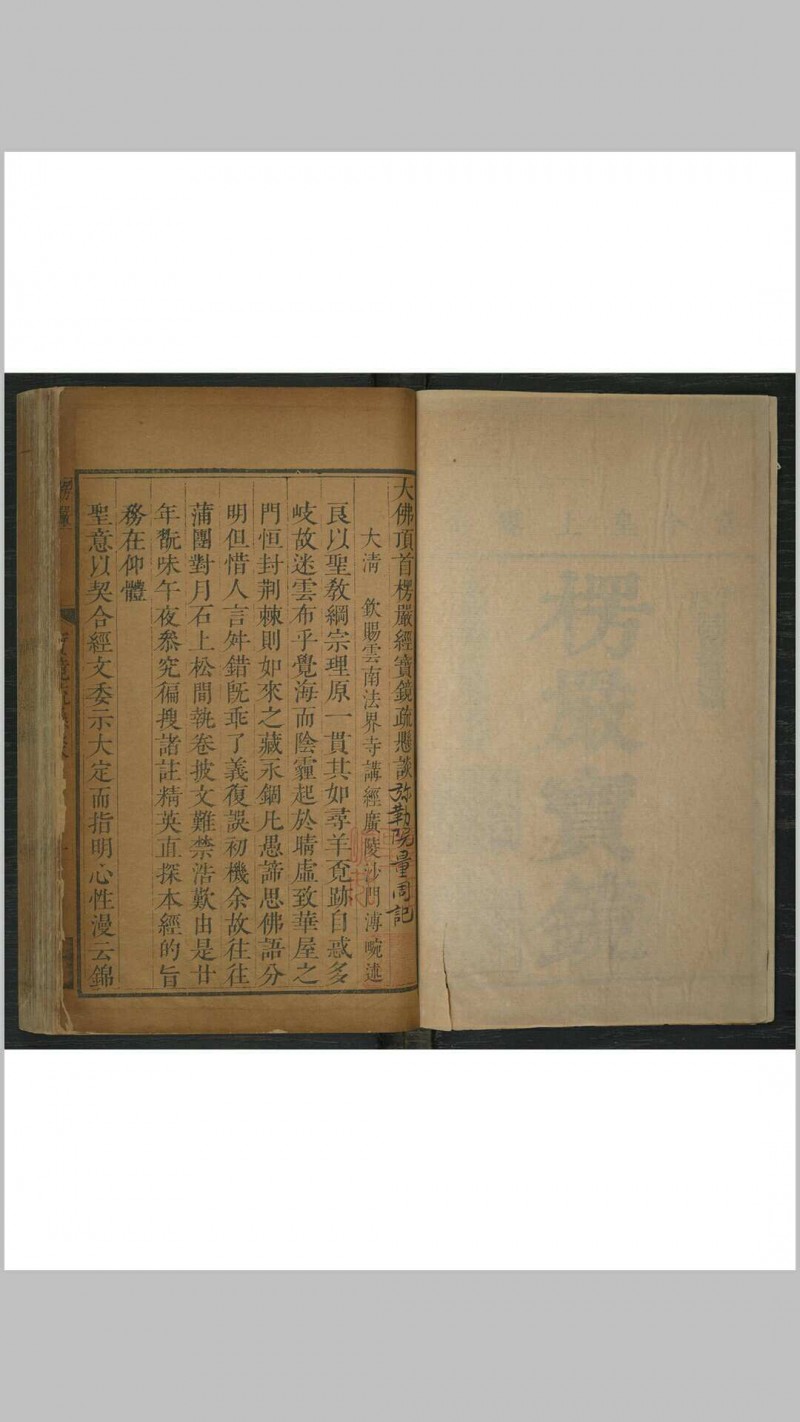 楞嚴寶鏡
大佛頂首楞嚴經寶鏡疏懸談 弥勒院量周記
大清 欽賜雲南法界寺講經廣陵沙門溥畹述
良以聖教綱宗理原一貫其如尋羊覓跡自惑多
岐故迷雲布乎覺海而陰霾起於晴虛致華屋之
門恒封荆棘則如來之藏永錮凡愚諦思佛語分
明但惜人言舛錯既乖了義復誤初機余故往往
蒲團對月石上松間執卷披文難禁浩歎由是廿
年翫味午夜叅究徧搜諸註精英直探本經的旨
務在仰體
聖意以契合經文委示大定而指明心性漫云錦
楞嚴